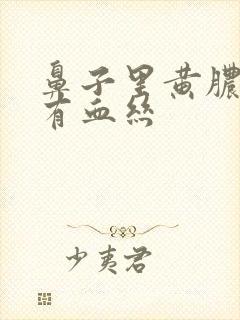 鼻子里黄脓
有血丝
少夷君